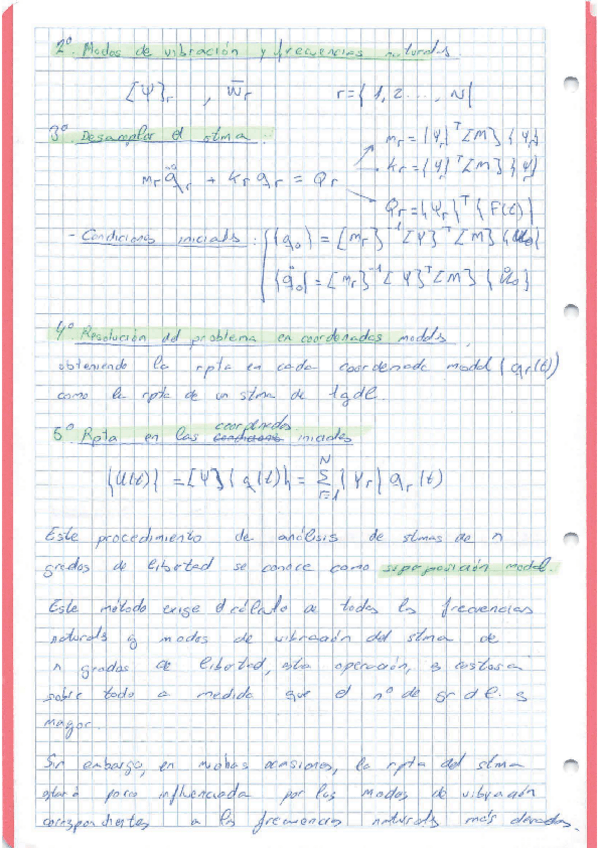 2º. Modos de vibración y frecuencias naturales.
[Ψ]r , w̄r r={1,2...., N}
3º. Desamplar el stma.
mr q̈r + kr qr = Qr
mr = {Ψr}ᵀ [M] {Ψr}
kr = {Ψr}ᵀ [M] {Ψr}
Qr = {Ψr}ᵀ {F(t)}
- Condiciones iniciales : { {q₀} = [mr]⁻¹ [Ψ]ᵀ [M] {u₀}
{q̇₀} = [mr]⁻¹ [Ψ]ᵀ [M] {u̇₀}
4º Resolución del problema en coordenadas modales,
obteniendo la rpta en cada coordenada modal (qr(t))
como la rpta de un stma de 1gdl.
coordenadas.
5º Rpta en las iniciales
{u(t)} = [Ψ] {q(t)} = Σ r=1 N {Ψr} qr (t)
Este procedimiento de análisis de stmas de n
grados de libertad se conoce como superposición modal.
Este método exige el cálculo de todas las frecuencias
naturales y modos de vibración del stma de
n grados de libertad, esta operación, es costosa
sobre todo a medida que el nº de gr d l. es
mayor.
Sin embargo, en muchas ocasiones, la rpta del stma
estará poco influenciada por los modos de vibración
correspondientes a las frecuencias naturales más elevadas.